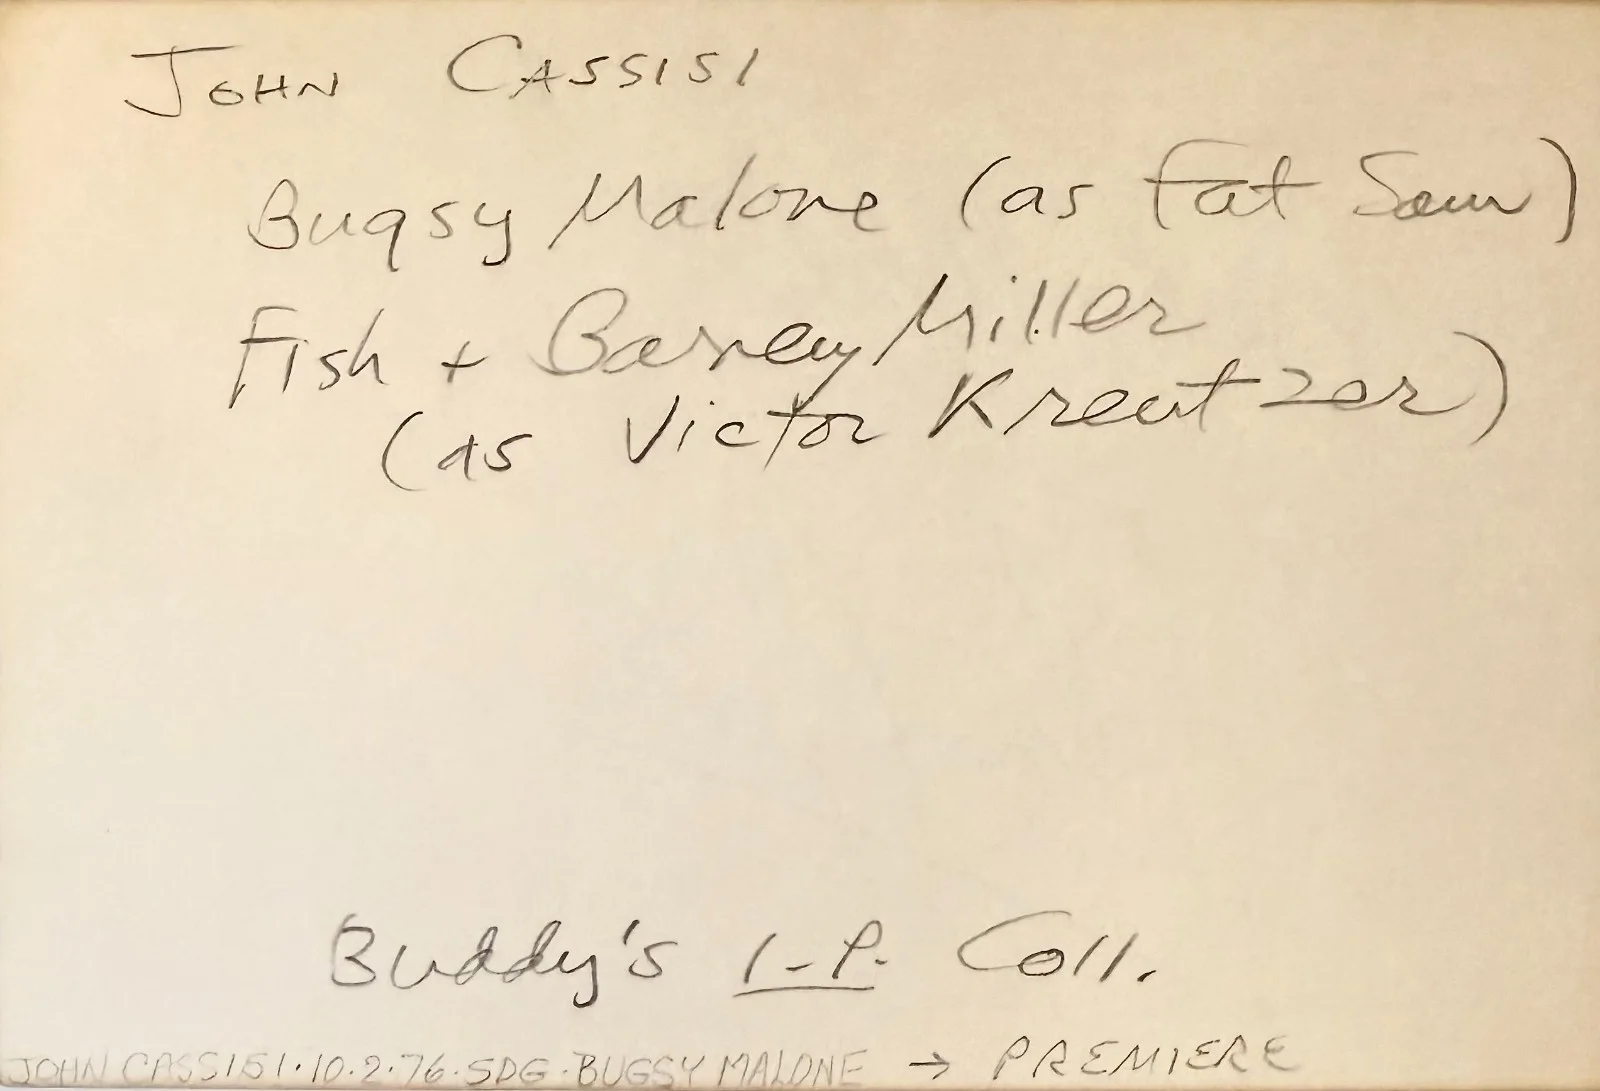 JOHN CASSISI
Bugsy Malone (as Fat Sam)
Fish + Barney Miller
(as Victor Kreutzer)
Buddy's I.P. Coll.
JOHN CASSISI·10·2·76·SDG·BUGSY MALONE → PREMIERE